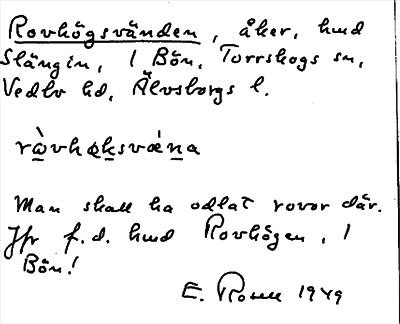 Rovhögsvänden, åker, hmd
Slängin, 1 Bön, Torrskogs sn,
Vedbo hd, Älvsborgs l.
Man skall ha odlat rovor där.
Jfr f.d. hmd Rovhögen, 1
Bön!
E. Rosell 1949